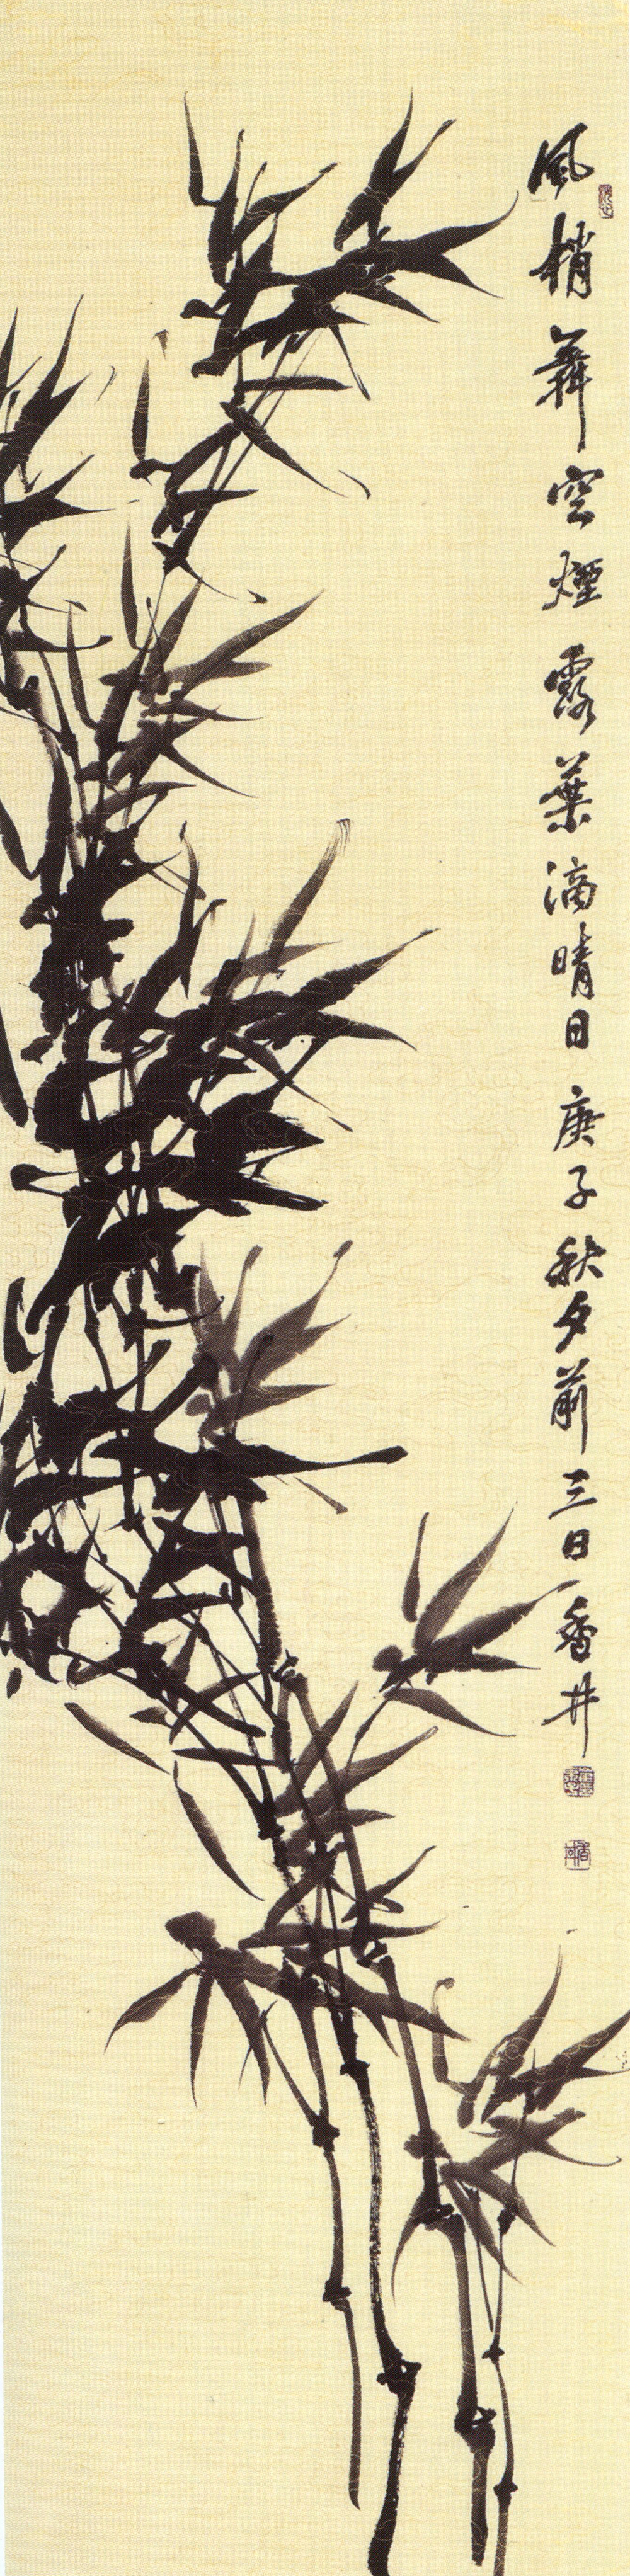 風梢舞空煙露葉滴晴日 庚子秋夕前三日 香井